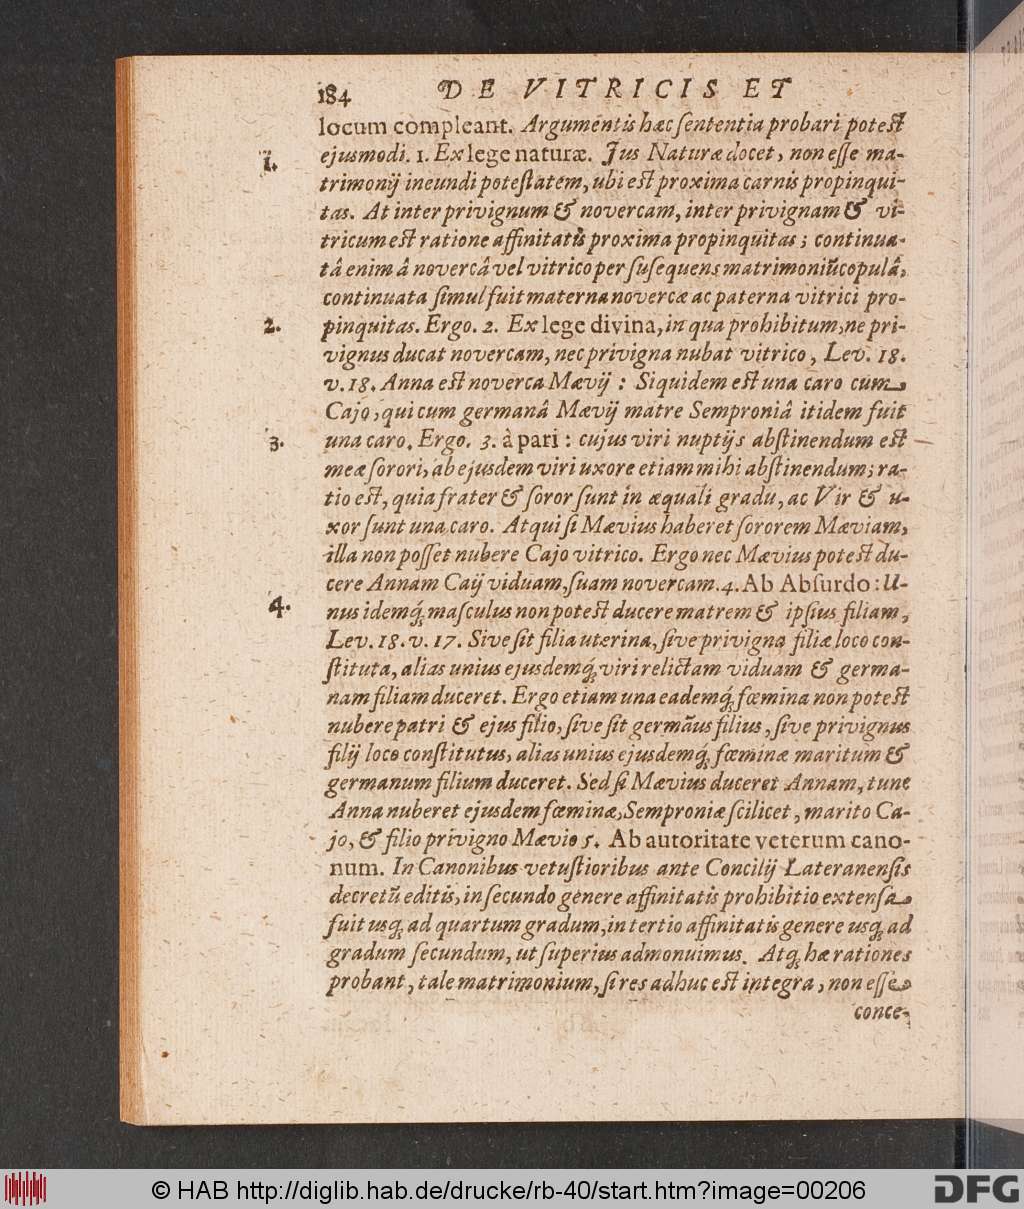 184 DE VITRICIS ET
locum compleant. Argumentis hæc ſententia probari poteſt
1. ejusmodi. 1. Ex lege naturæ. Jus Naturæ docet, non eſſe ma-
trimonij ineundi poteſtatem, ubi eſt proxima carnis propinqui-
tas. At inter privignum & novercam, inter privignam & vi-
tricum eſt ratione affinitatis proxima propinquitas; continua-
tâ enim â novercâ vel vitrico per ſuſequens matrimoniũ copulâ,
continuata ſimul fuit materna novercæ ac paterna vitrici pro-
2. pinquitas. Ergo. 2. Ex lege divina, in qua prohibitum, ne pri-
vignus ducat novercam, nec privigna nubat vitrico, Lev. 18.
v. 18. Anna eſt noverca Mævij: Siquidem eſt una caro cum
Cajo, qui cum germanâ Mævij matre Semproniâ itidem fuit
3. una caro. Ergo. 3. à pari: cujus viri nuptijs abſtinendum eſt
meæ ſorori, ab ejusdem viri uxore etiam mihi abſtinendum; ra-
tio eſt, quia frater & ſoror ſunt in æquali gradu, ac Vir & u-
xor ſunt una caro. Atqui ſi Mævius haberet ſororem Mæviam,
illa non poſſet nubere Cajo vitrico. Ergo nec Mævius poteſt du-
cere Annam Caij viduam, ſuam novercam. 4. Ab Abſurdo: U-
4. nus idemq́; maſculus non poteſt ducere matrem & ipſius filiam,
Lev. 18. v. 17. Sive ſit filia uterina, ſive privigna filiæ loco con-
ſtituta, alias unius ejusdemq́; viri relictam viduam & germa-
nam filiam duceret. Ergo etiam una eademq́; fœmina non poteſt
nubere patri & ejus filio, ſive ſit germãus filius, ſive privignus
filij loco conſtitutus, alias unius ejusdemq́; fœminæ maritum &
germanum filium duceret. Sed ſi Mævius duceret Annam, tunc
Anna nuberet ejusdem fœminæ, Semproniæ ſcilicet, marito Ca-
jo, & filio privigno Mævio 5. Ab autoritate veterum cano-
num. In Canonibus vetuſtioribus ante Concilij Lateranenſis
decretũ editis, in ſecundo genere affinitatis prohibitio extenſa
fuit usq; ad quartum gradum, in tertio affinitatis genere usq; ad
gradum ſecundum, ut ſuperius admonuimus. Atq; hæ rationes
probant, tale matrimonium, ſi res adhuc eſt integra, non eſſe
conce-
© HAB http://diglib.hab.de/drucke/rb-40/start.htm?image=00206
DFG